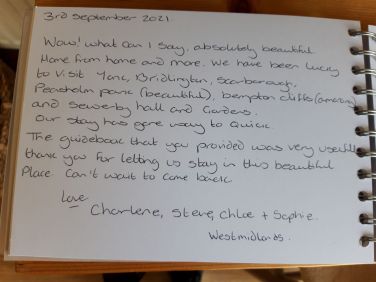 3rd September 2021.
Wow! what can I say, absolutely beautiful
Home from home and more. We have been lucky
to visit York, Bridlington, Scarborough,
Peasholm park (beautiful), bempton cliffs (amazing)
and sewerby hall and Gardens.
Our stay has gone way to Quick.
The guidebook that you provided was very usefull
thank you for letting us stay in this beautiful
Place. Can't wait to come back.
Love
Charlene, Steve, Chloe + Sophie.
Westmidlands.